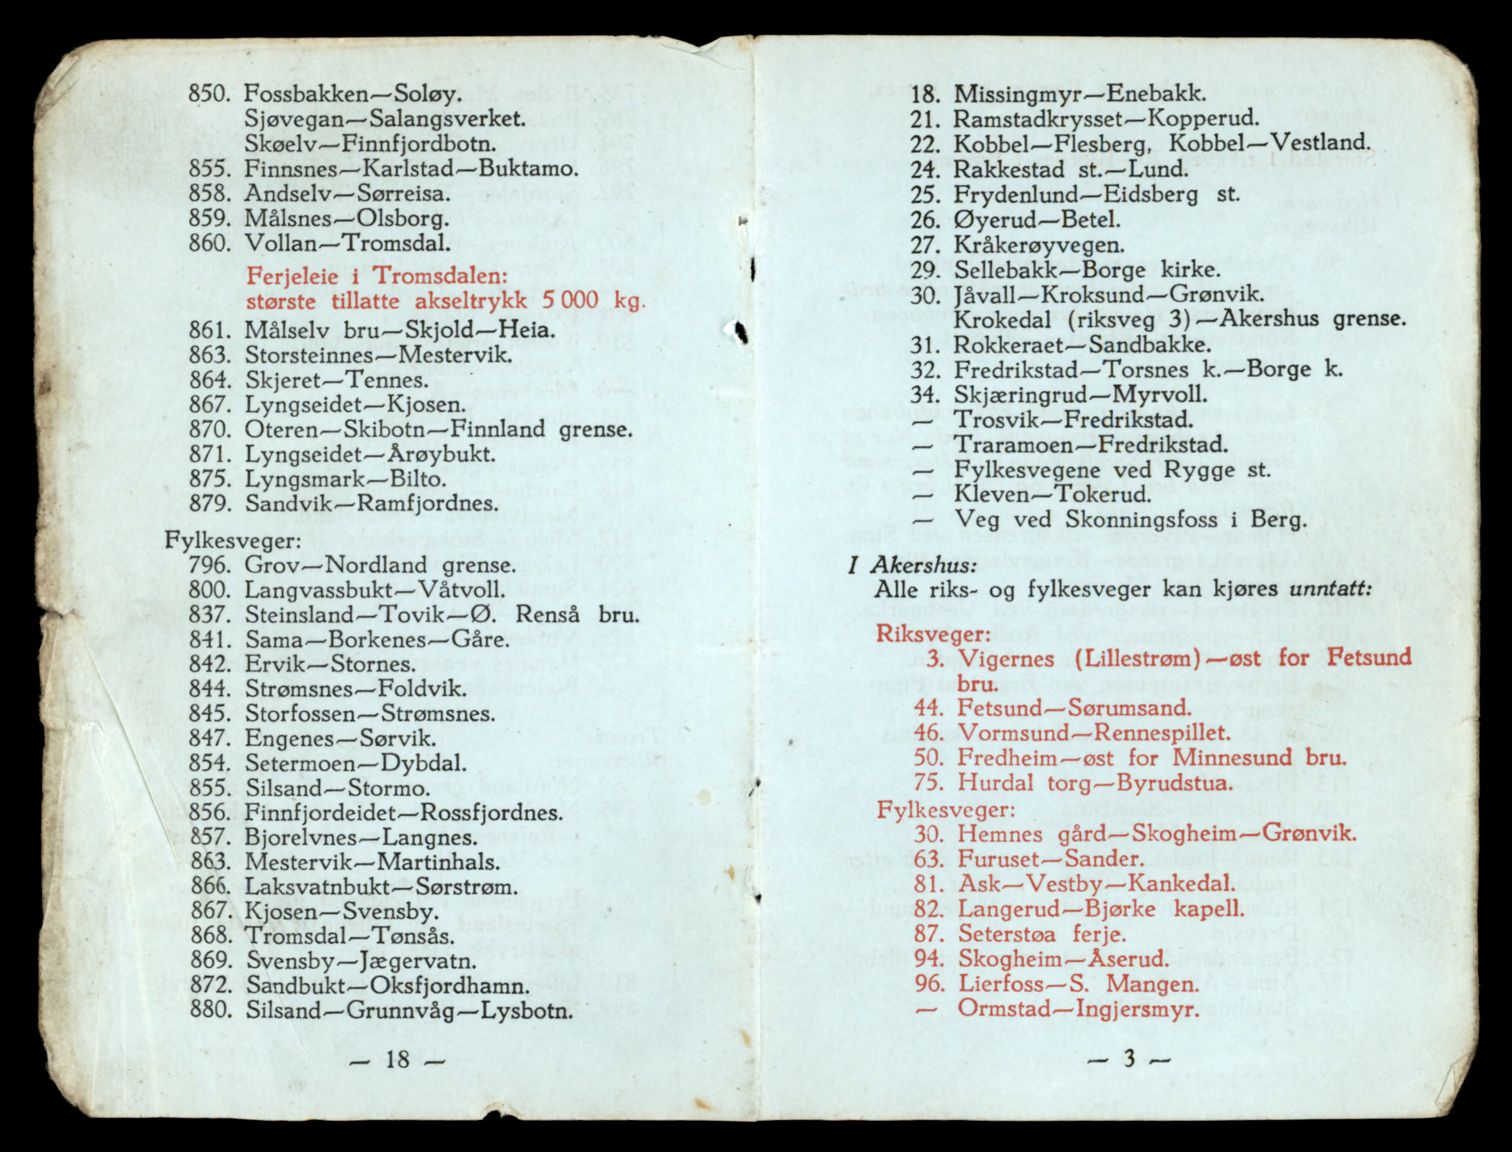 850. Fossbakken—Soløy.
Sjøvegan—Salangsverket.
Skøelv—Finnfjordbotn.
855. Finnsnes—Karlstad—Buktamo.
858. Andselv—Sørreisa.
859. Målsnes—Olsborg.
860. Vollan—Tromsdal.
Ferjeleie i Tromsdalen:
største tillatte akseltrykk 5 000 kg.
861. Målselv bru—Skjold—Heia.
863. Storsteinnes—Mestervik.
864. Skjeret—Tennes.
867. Lyngseidet—Kjosen.
870. Oteren—Skibotn—Finnland grense.
871. Lyngseidet—Årøybukt.
875. Lyngsmark—Bilto.
879. Sandvik—Ramfjordnes.
Fylkesveger:
796. Grov—Nordland grense.
800. Langvassbukt—Våtvoll.
837. Steinsland—Tovik—Ø. Renså bru.
841. Sama—Borkenes—Gåre.
842. Ervik—Stornes.
844. Strømsnes—Foldvik.
845. Storfossen—Strømsnes.
847. Engenes—Sørvik.
854. Setermoen—Dybdal.
855. Silsand—Stormo.
856. Finnfjordeidet—Rossfjordnes.
857. Bjorelvnes—Langnes.
863. Mestervik—Martinhals.
866. Laksvatnbukt—Sørstrøm.
867. Kjosen—Svensby.
868. Tromsdal—Tønsås.
869. Svensby—Jægervatn.
872. Sandbukt—Oksfjordhamn.
880. Silsand—Grunnvåg—Lysbotn.
— 18 —
18. Missingmyr—Enebakk.
21. Ramstadkrysset—Kopperud.
22. Kobbel—Flesberg, Kobbel—Vestland.
24. Rakkestad st.—Lund.
25. Frydenlund—Eidsberg st.
26. Øyerud—Betel.
27. Kråkerøyvegen.
29. Sellebakk—Borge kirke.
30. Jåvall—Kroksund—Grønvik.
Krokedal (riksveg 3)—Akershus grense.
31. Rokkeraet—Sandbakke.
32. Fredrikstad—Torsnes k.—Borge k.
34. Skjæringrud—Myrvoll.
— Trosvik—Fredrikstad.
— Traramoen—Fredrikstad.
— Fylkesvegene ved Rygge st.
— Kleven—Tokerud.
— Veg ved Skonningsfoss i Berg.
I Akershus:
Alle riks- og fylkesveger kan kjøres unntatt:
Riksveger:
3. Vigernes (Lillestrøm)—øst for Fetsund
bru.
44. Fetsund—Sørumsand.
46. Vormsund—Rennespillet.
50. Fredheim—øst for Minnesund bru.
75. Hurdal torg—Byrudstua.
Fylkesveger:
30. Hemnes gård—Skogheim—Grønvik.
63. Furuset—Sander.
81. Ask—Vestby—Kankedal.
82. Langerud—Bjørke kapell.
87. Seterstøa ferje.
94. Skogheim—Åserud.
96. Lierfoss—S. Mangen.
— Ormstad—Ingjersmyr.
— 3 —